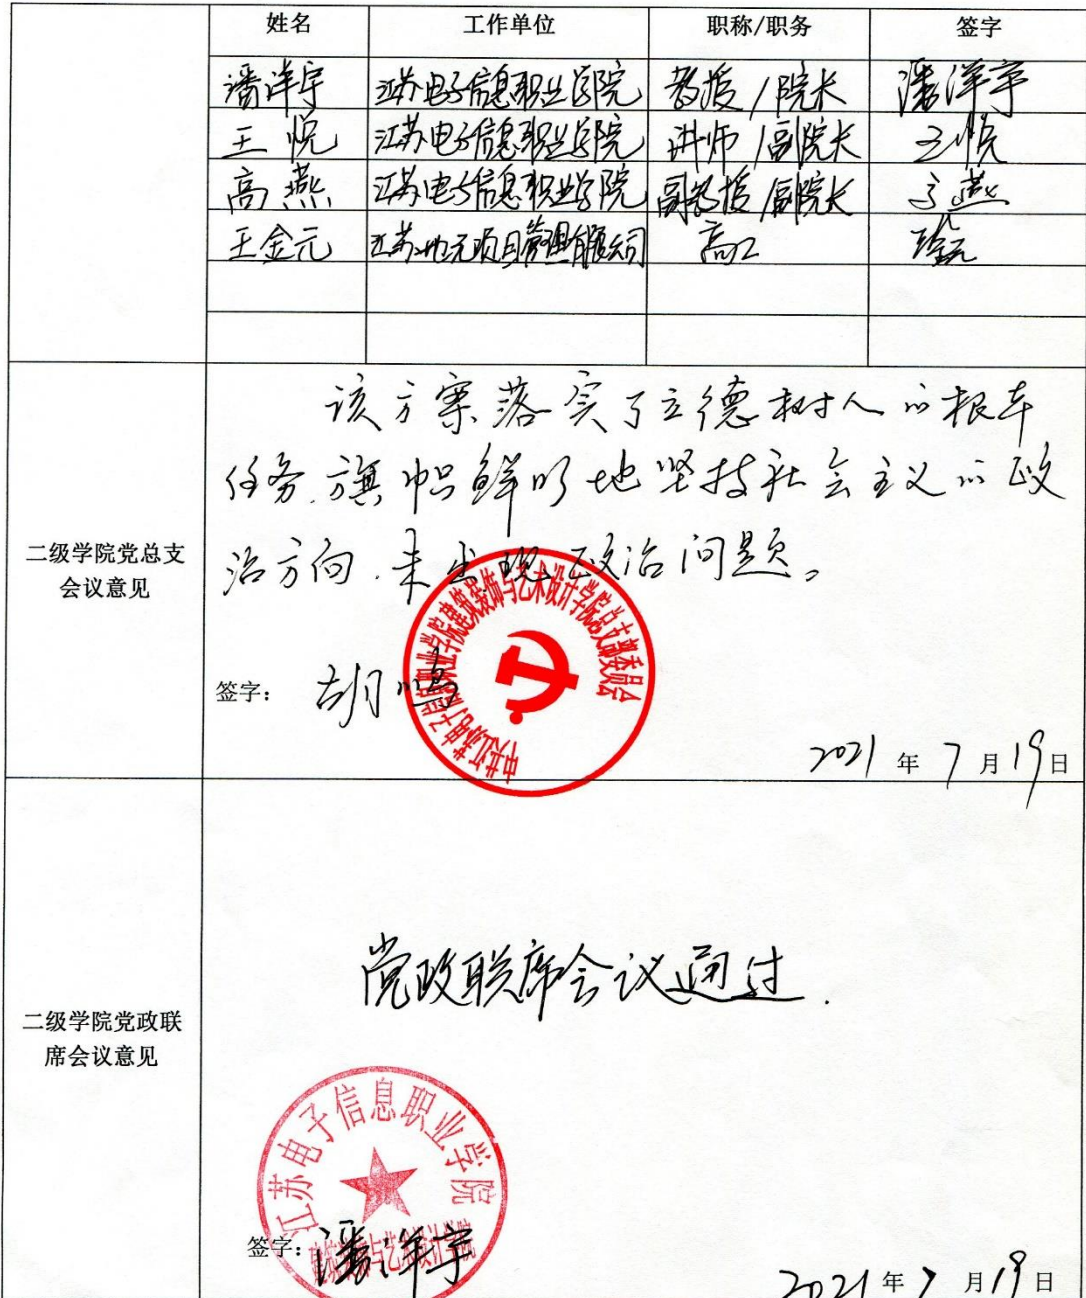 姓名 工作单位 职称/职务 签字
潘洋宇 江苏电子信息职业学院 教授/院长 潘洋宇
王悦 江苏电子信息职业学院 讲师/副院长 王悦
高燕 江苏电子信息职业学院 副教授/副院长 高燕
王金元 江苏地元项目管理有限公司 高工 王金元
该方案落实了立德树人的根本
任务.旗帜鲜明地坚持社会主义的政
治方向.未出现政治问题。
二级学院党总支
会议意见
中共江苏电子信息职业学院建筑装饰与艺术设计学院总支部委员会
签字: 胡鸣
2021 年 7 月 19 日
党政联席会议通过.
二级学院党政联
席会议意见
江苏电子信息职业学院
建筑装饰与艺术设计学院
签字: 潘洋宇
2021 年 7 月 19 日